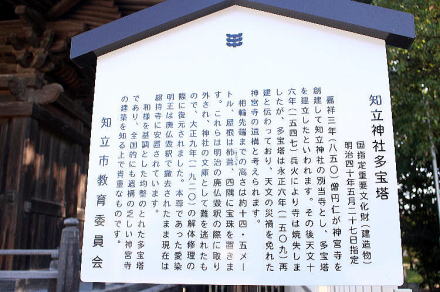 知立神社多宝塔
国指定重要文化財(建造物)
明治四十年五月二十七日指定
嘉祥三年(八五〇)僧円仁が神宮寺を
創建して知立神社の別当寺とし、多宝塔
を建立したといわれます。その後天文十
六年(一五四七)兵火により寺は焼失しま
したが、多宝塔は永正六年(一五〇九)再
建と伝わっており、天文の災禍を免れた
神宮寺の遺構と考えられます。
相輪先端までの高さは約十四・五メー
トル、屋根は杮葺、四隅に宝珠を置きま
す。これらは明治の廃仏毀釈の際に取り
外され、神社の文庫として難を逃れたも
ので、大正九年(一九二〇)の解体修理の
際に復元されました。本尊であった愛染
明王は廃仏毀釈で撤去されたまま現在は
総持寺に安置されています。
和様を基調とした均整のとれた多宝塔
であり、全国的にも遺構の乏しい神宮寺
の建築を知る上で貴重なものです。
知立市教育委員会